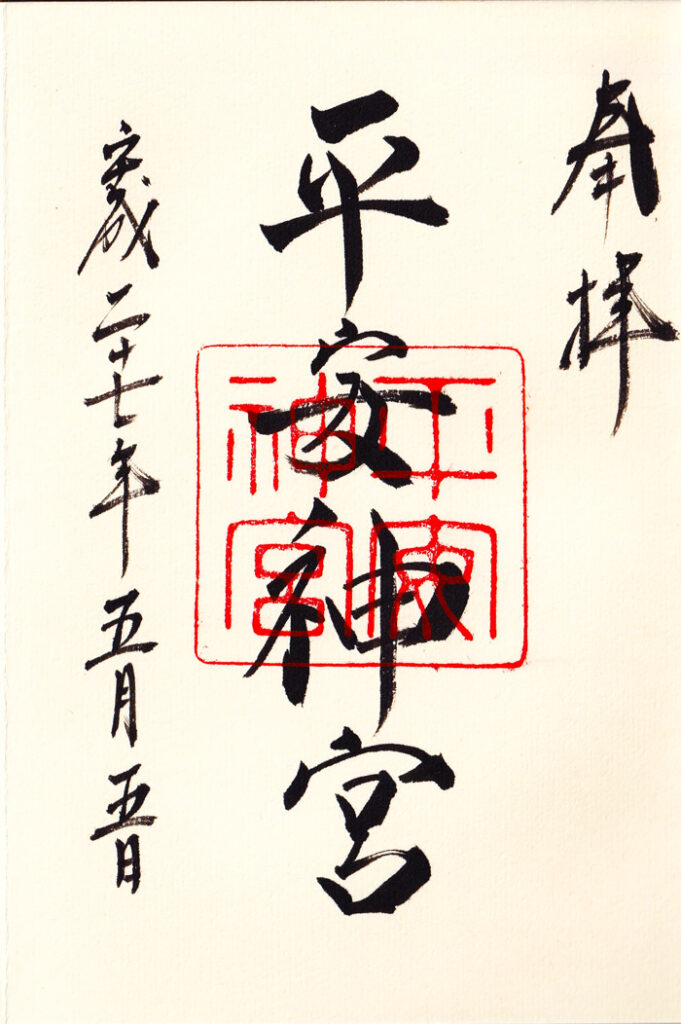 奉拝
平安神宮
平安
神宮
平成二十七年五月五日